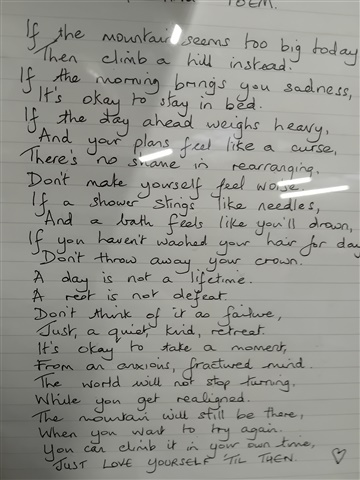 POEM.
If the mountain seems too big today
Then climb a hill instead.
If the morning brings you sadness,
It's okay to stay in bed.
If the day ahead weighs heavy,
And your plans feel like a curse,
There's no shame in rearranging,
Don't make yourself feel worse.
If a shower stings like needles,
And a bath feels like you'll drown,
If you haven't washed your hair for day
Don't throw away your crown.
A day is not a lifetime.
A rest is not defeat.
Don't think of it as failure,
Just, a quiet, kind, retreat.
It's okay to take a moment,
From an anxious, fractured mind.
The world will not stop turning.
While you get realigned.
The mountain will still be there,
When you want to try again.
You can climb it in your own time,
JUST LOVE YOURSELF 'TIL THEN. ♡